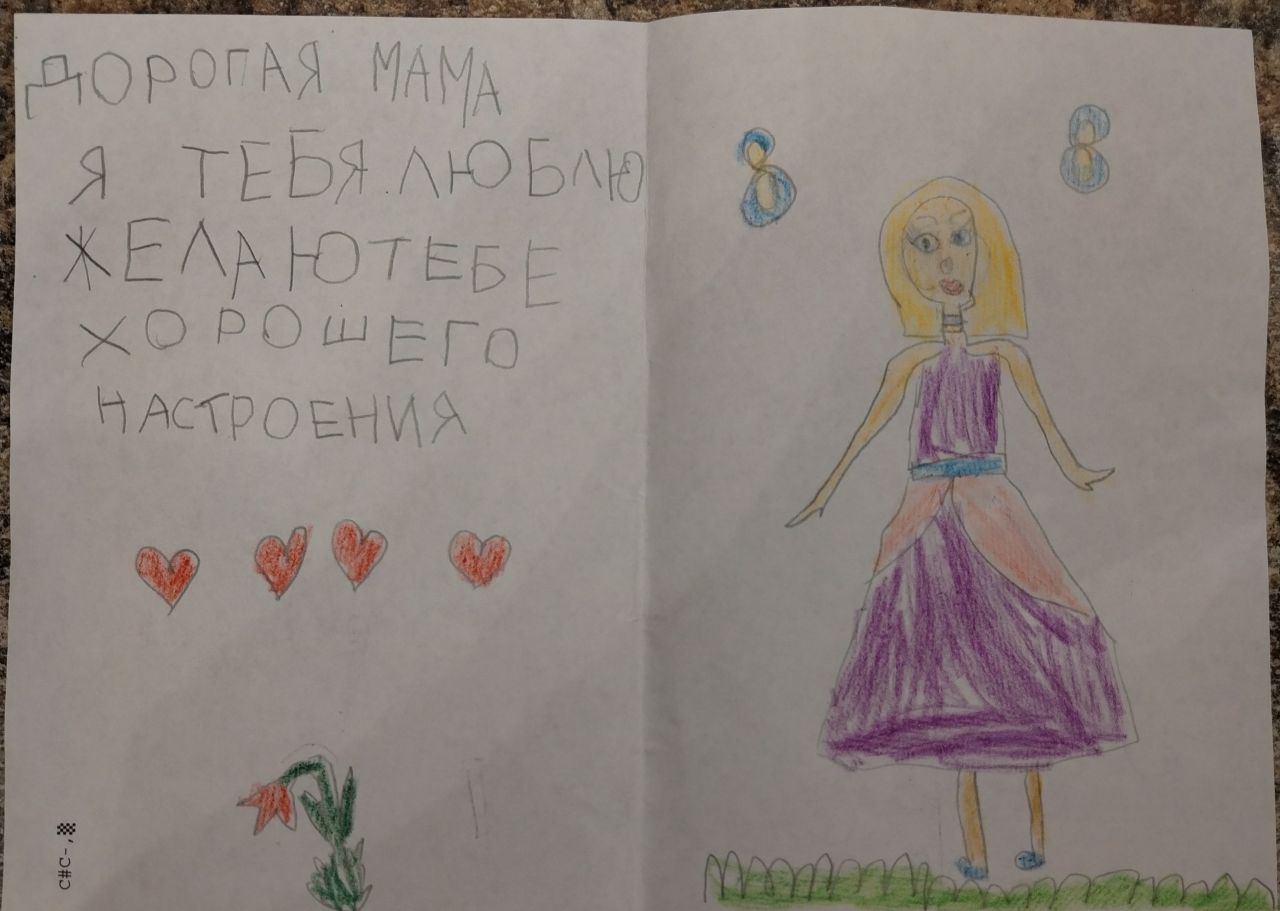 ДОРОПАЯ МАМА
Я ТЕБЯ ЛЮБЛЮ
ЖЕЛАЮ ТЕБЕ
ХОРОШЕГО
НАСТРОЕНИЯ
8 8